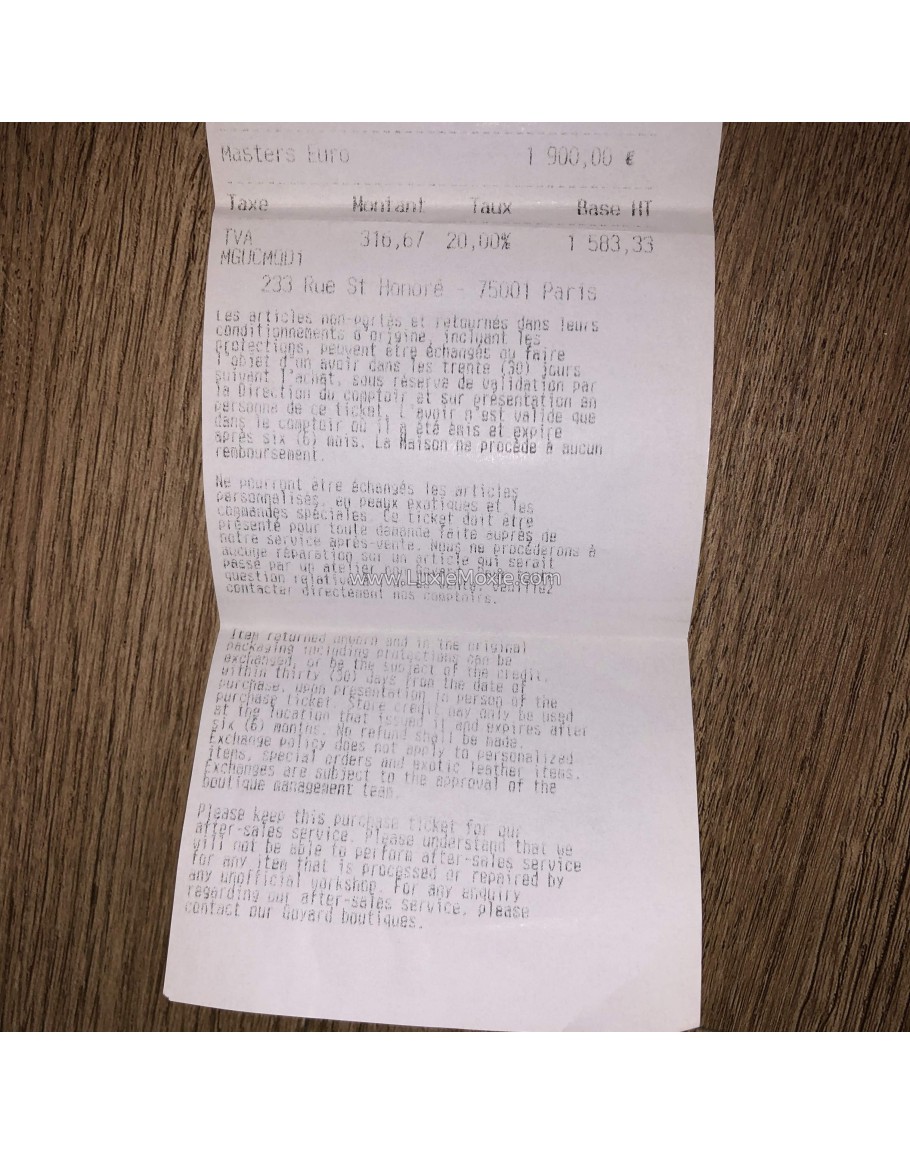 Masters Euro 1 900,00 €
Taxe Montant Taux Base HT
TVA 316,67 20,00% 1 583,33
MGUCMOD1
233 Rue St Honoré - 75001 Paris
Les articles non-portés et retournés dans leurs
conditionnements d'origine, incluant les
protections, peuvent être échangés ou faire
l'objet d'un avoir dans les trente (30) jours
suivant l'achat, sous réserve de validation par
la Direction du comptoir et sur présentation en
personne de ce ticket. L'avoir n'est valide que
dans le comptoir où il a été émis et expire
après six (6) mois. La Maison ne procède à aucun
remboursement.
Ne pourront être échangés les articles
personnalisés, en peaux exotiques et les
commandes spéciales. Ce ticket doit être
présenté pour toute demande faite auprès de
notre service après-vente. Nous ne procéderons à
aucune réparation sur un article qui serait
passé par un atelier
www.LuxieMoxie.com
question veuillez
contacter directement nos comptoirs.
Item returned unworn and in the original
packaging including protections can be
exchanged, or be the subject of the credit,
within thirty (30) days from the date of
purchase, upon presentation in person of the
purchase ticket. Store credit may only be used
at the location that issued it and expires after
six (6) months. No refund shall be made.
Exchange policy does not apply to personalized
items, special orders and exotic leather items.
Exchanges are subject to the approval of the
boutique management team.
Please keep this purchase ticket for our
after-sales service. Please understand that we
will not be able to perform after-sales service
for any item that is processed or repaired by
any unofficial workshop. For any enquiry
regarding our after-sales service, please
contact our Goyard boutiques.